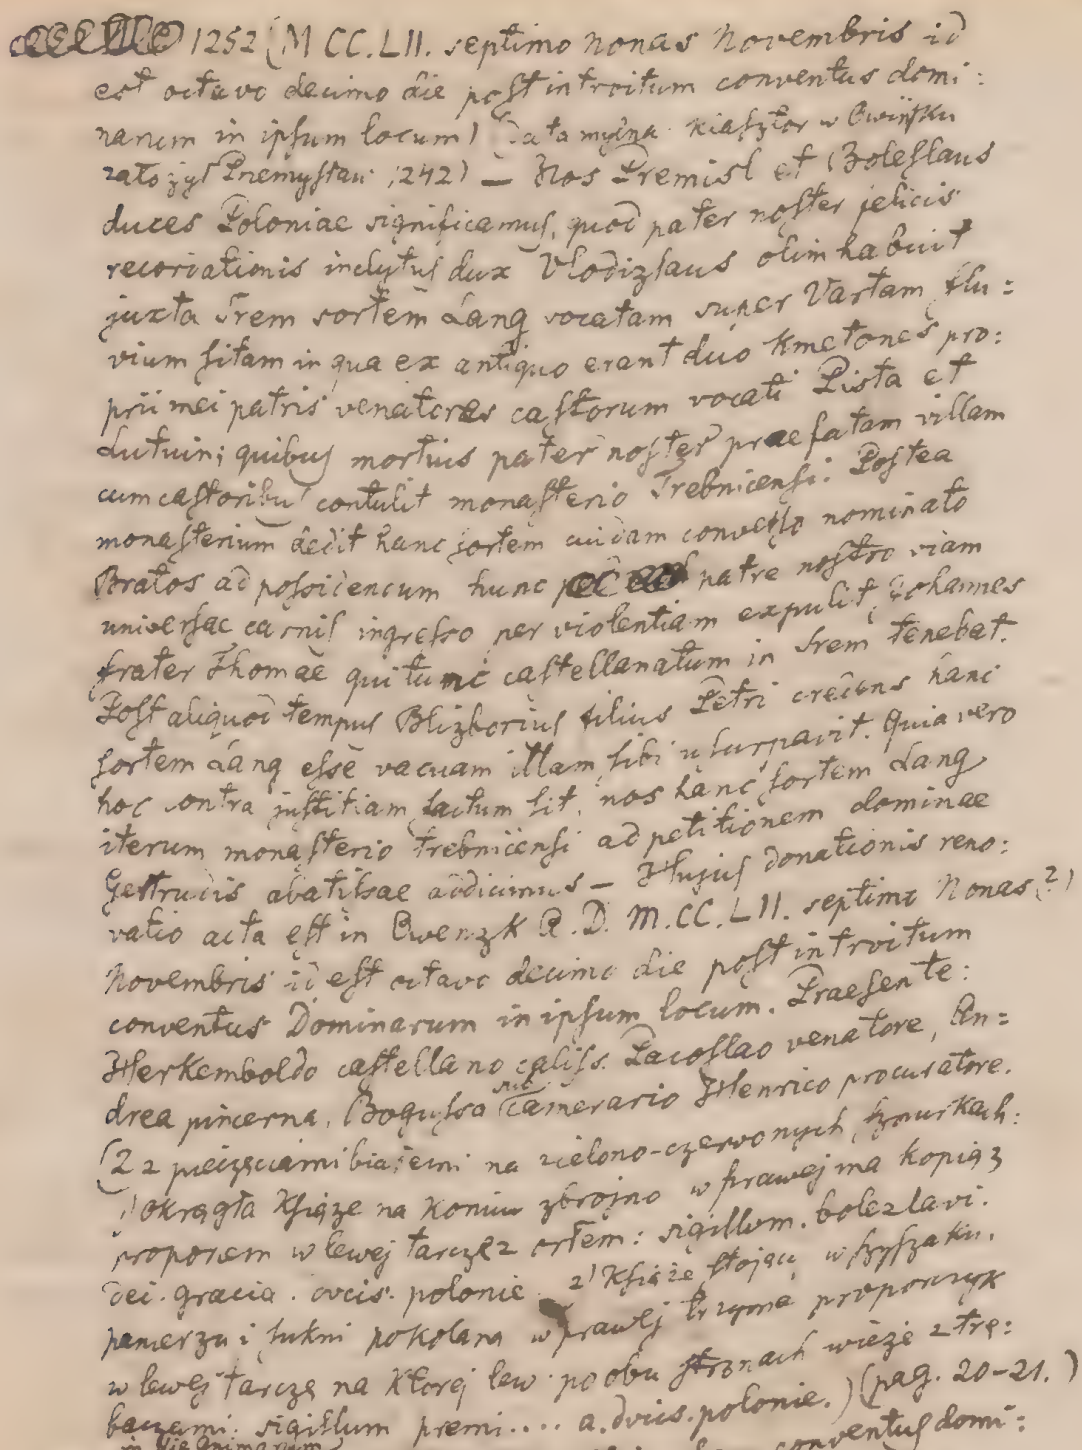 1252 (M CC.LII. septimo Nonas Novembris id
est octavo decimo die post introitum conventus domi:
narum in ipsum locum) Data mylna. Klasztor w Owińsku
założył Przemysław 1242) — Nos Premisl et Boleslaus
duces Poloniae significamus, quod pater noster felicis
recordationis inclytus dux Vlodizlaus olim habuit
juxta Srem sortem Lang vocatam super Vartam flu:
vium sitam in qua ex antiquo erant duo Kmetones pro:
prii mei patris venatores castorum vocati Pista et
Lutuin; quibus mortuis pater noster praefatam villam
cum castoribus contulit monasterio Trebnicensi. Postea
monasterium dedit hanc sortem cuidam converso nominato
Bratos ad possidendum hunc patre nostro viam
universae carnis ingresso per violentiam expulit Johannes
frater Thomae qui tunc castellanatum in Srem tenebat.
Post aliquod tempus Blizborius filius Petri credens hanc
sortem Lang esse vacuam illam sibi usurpavit. Quia vero
hoc contra justitiam factum sit, nos hanc sortem Lang
iterum monasterio trebnicensi ad petitionem dominae
Gertrudis abatissae addicimus — Hujus donationis reno:
vatio acta est in Owenzk A. D. M.CC.LII. septimo Nonas (?)
Novembris id est octavo decimo die post introitum
conventus Dominarum in ipsum locum. Praesente:
Herkemboldo castellano caliss. Pacoslao venatore, An=
drea pincerna, Bogussa sic Camerario Henrico procuratore.
(Z 2 pieczęciami białemi na zielono-czerwonych sznurkach:
1) okrągła Książe na Koniu zbrojno w prawej ma kopią z
proporcem w lewej tarczę z orłem: sigillum. bolezlavi.
dei. gracia. ducis. polonie 2) Książe stojąc w szyszaku,
pancerzu i sukni pokolana w prawej trzyma proporczyk
w lewej tarczę na Której lew po obu stronach wieże z trę:
baczami: sigillum premi.... a. dvcis. polonie.) (pag. 20-21.)
in die Animarum conventus domi: